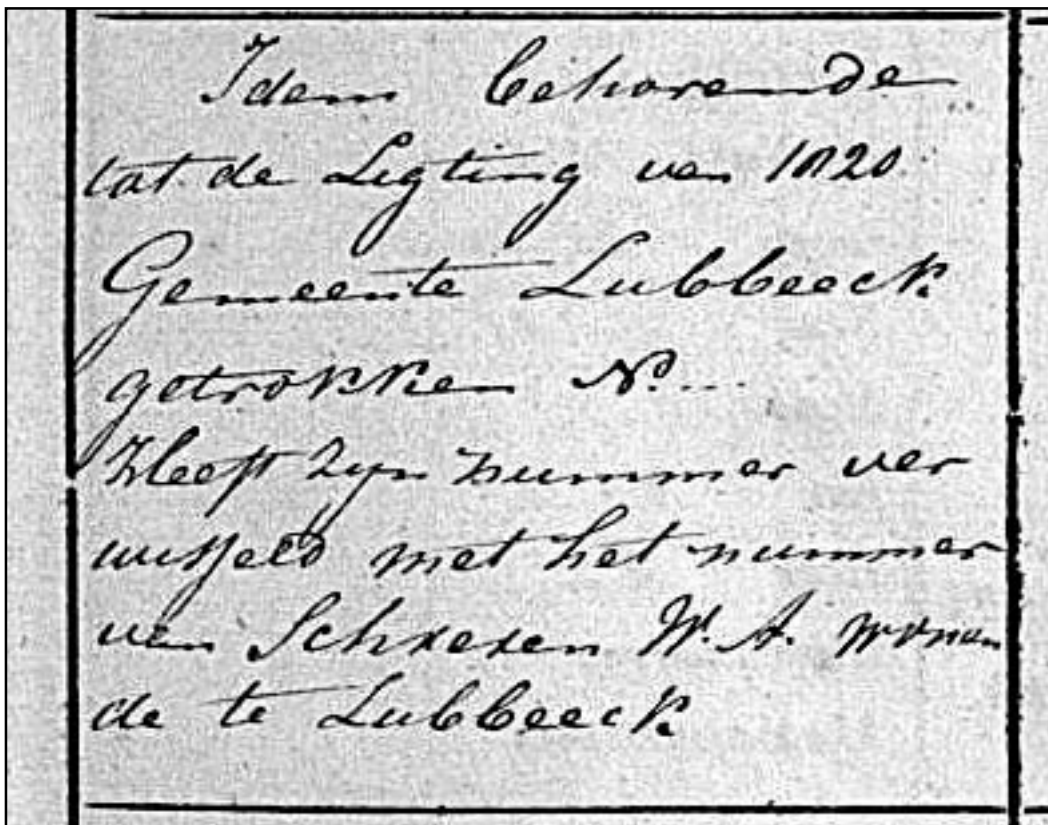 Idem behorende
tot de Ligting van 1820
Gemeente Lubbeeck
getrokken N°. ...
Heeft zyn nummer ver
wisseld met het nummer
van W. A. wonen
de te Lubbeeck